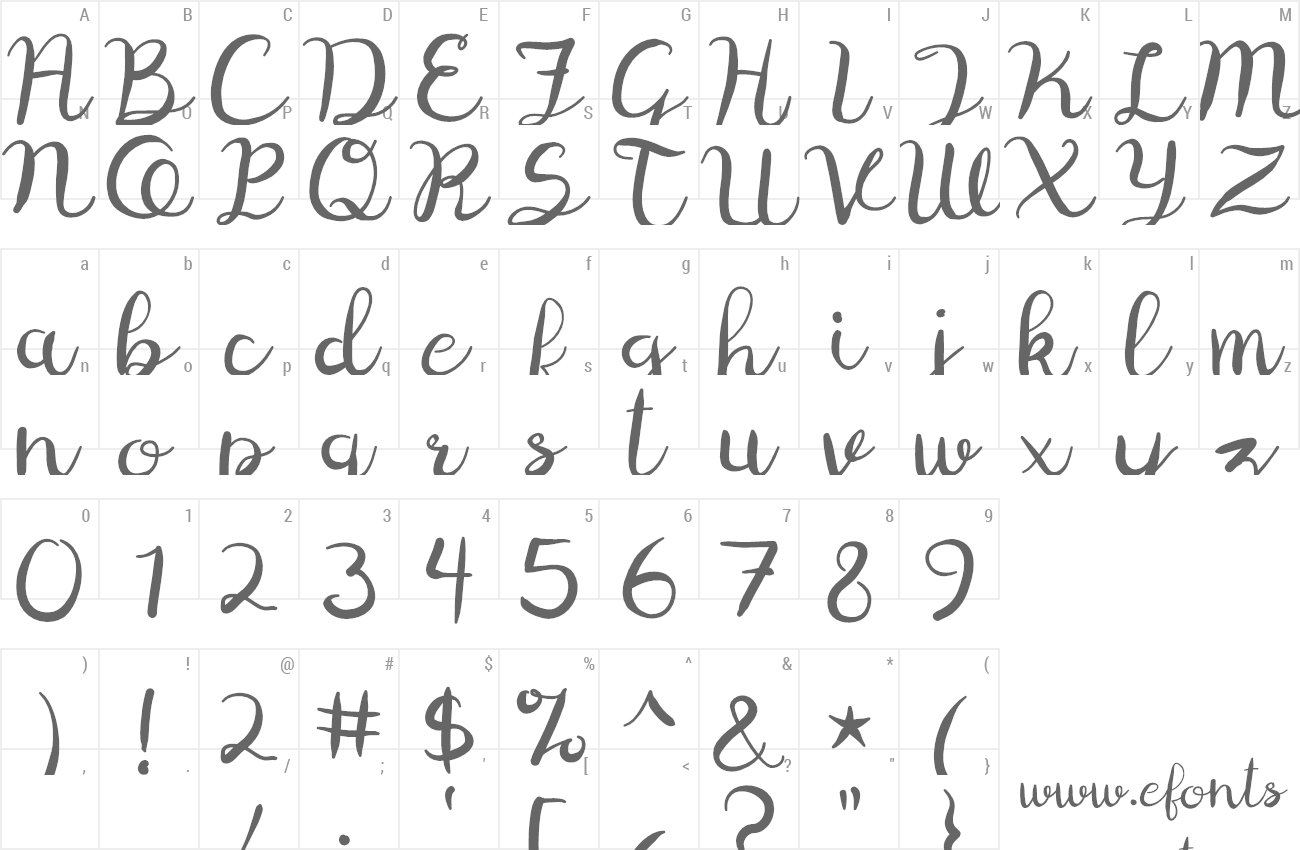 A B C D E F G H I J K L M
A B C D E F G H I J K L M
N O P Q R S T U V W X Y Z
N O P Q R S T U V W X Y Z
a b c d e f g h i j k l m
a b c d e f g h i j k l m
n o p q r s t u v w x y z
n o p q r s t u v w x y z
0 1 2 3 4 5 6 7 8 9
0 1 2 3 4 5 6 7 8 9
) ! @ # $ % ^ & * (
) ! 2 # $ % ^ & * (
, . / ; ' [ < ? " }
' [ ? " }
www.efonts